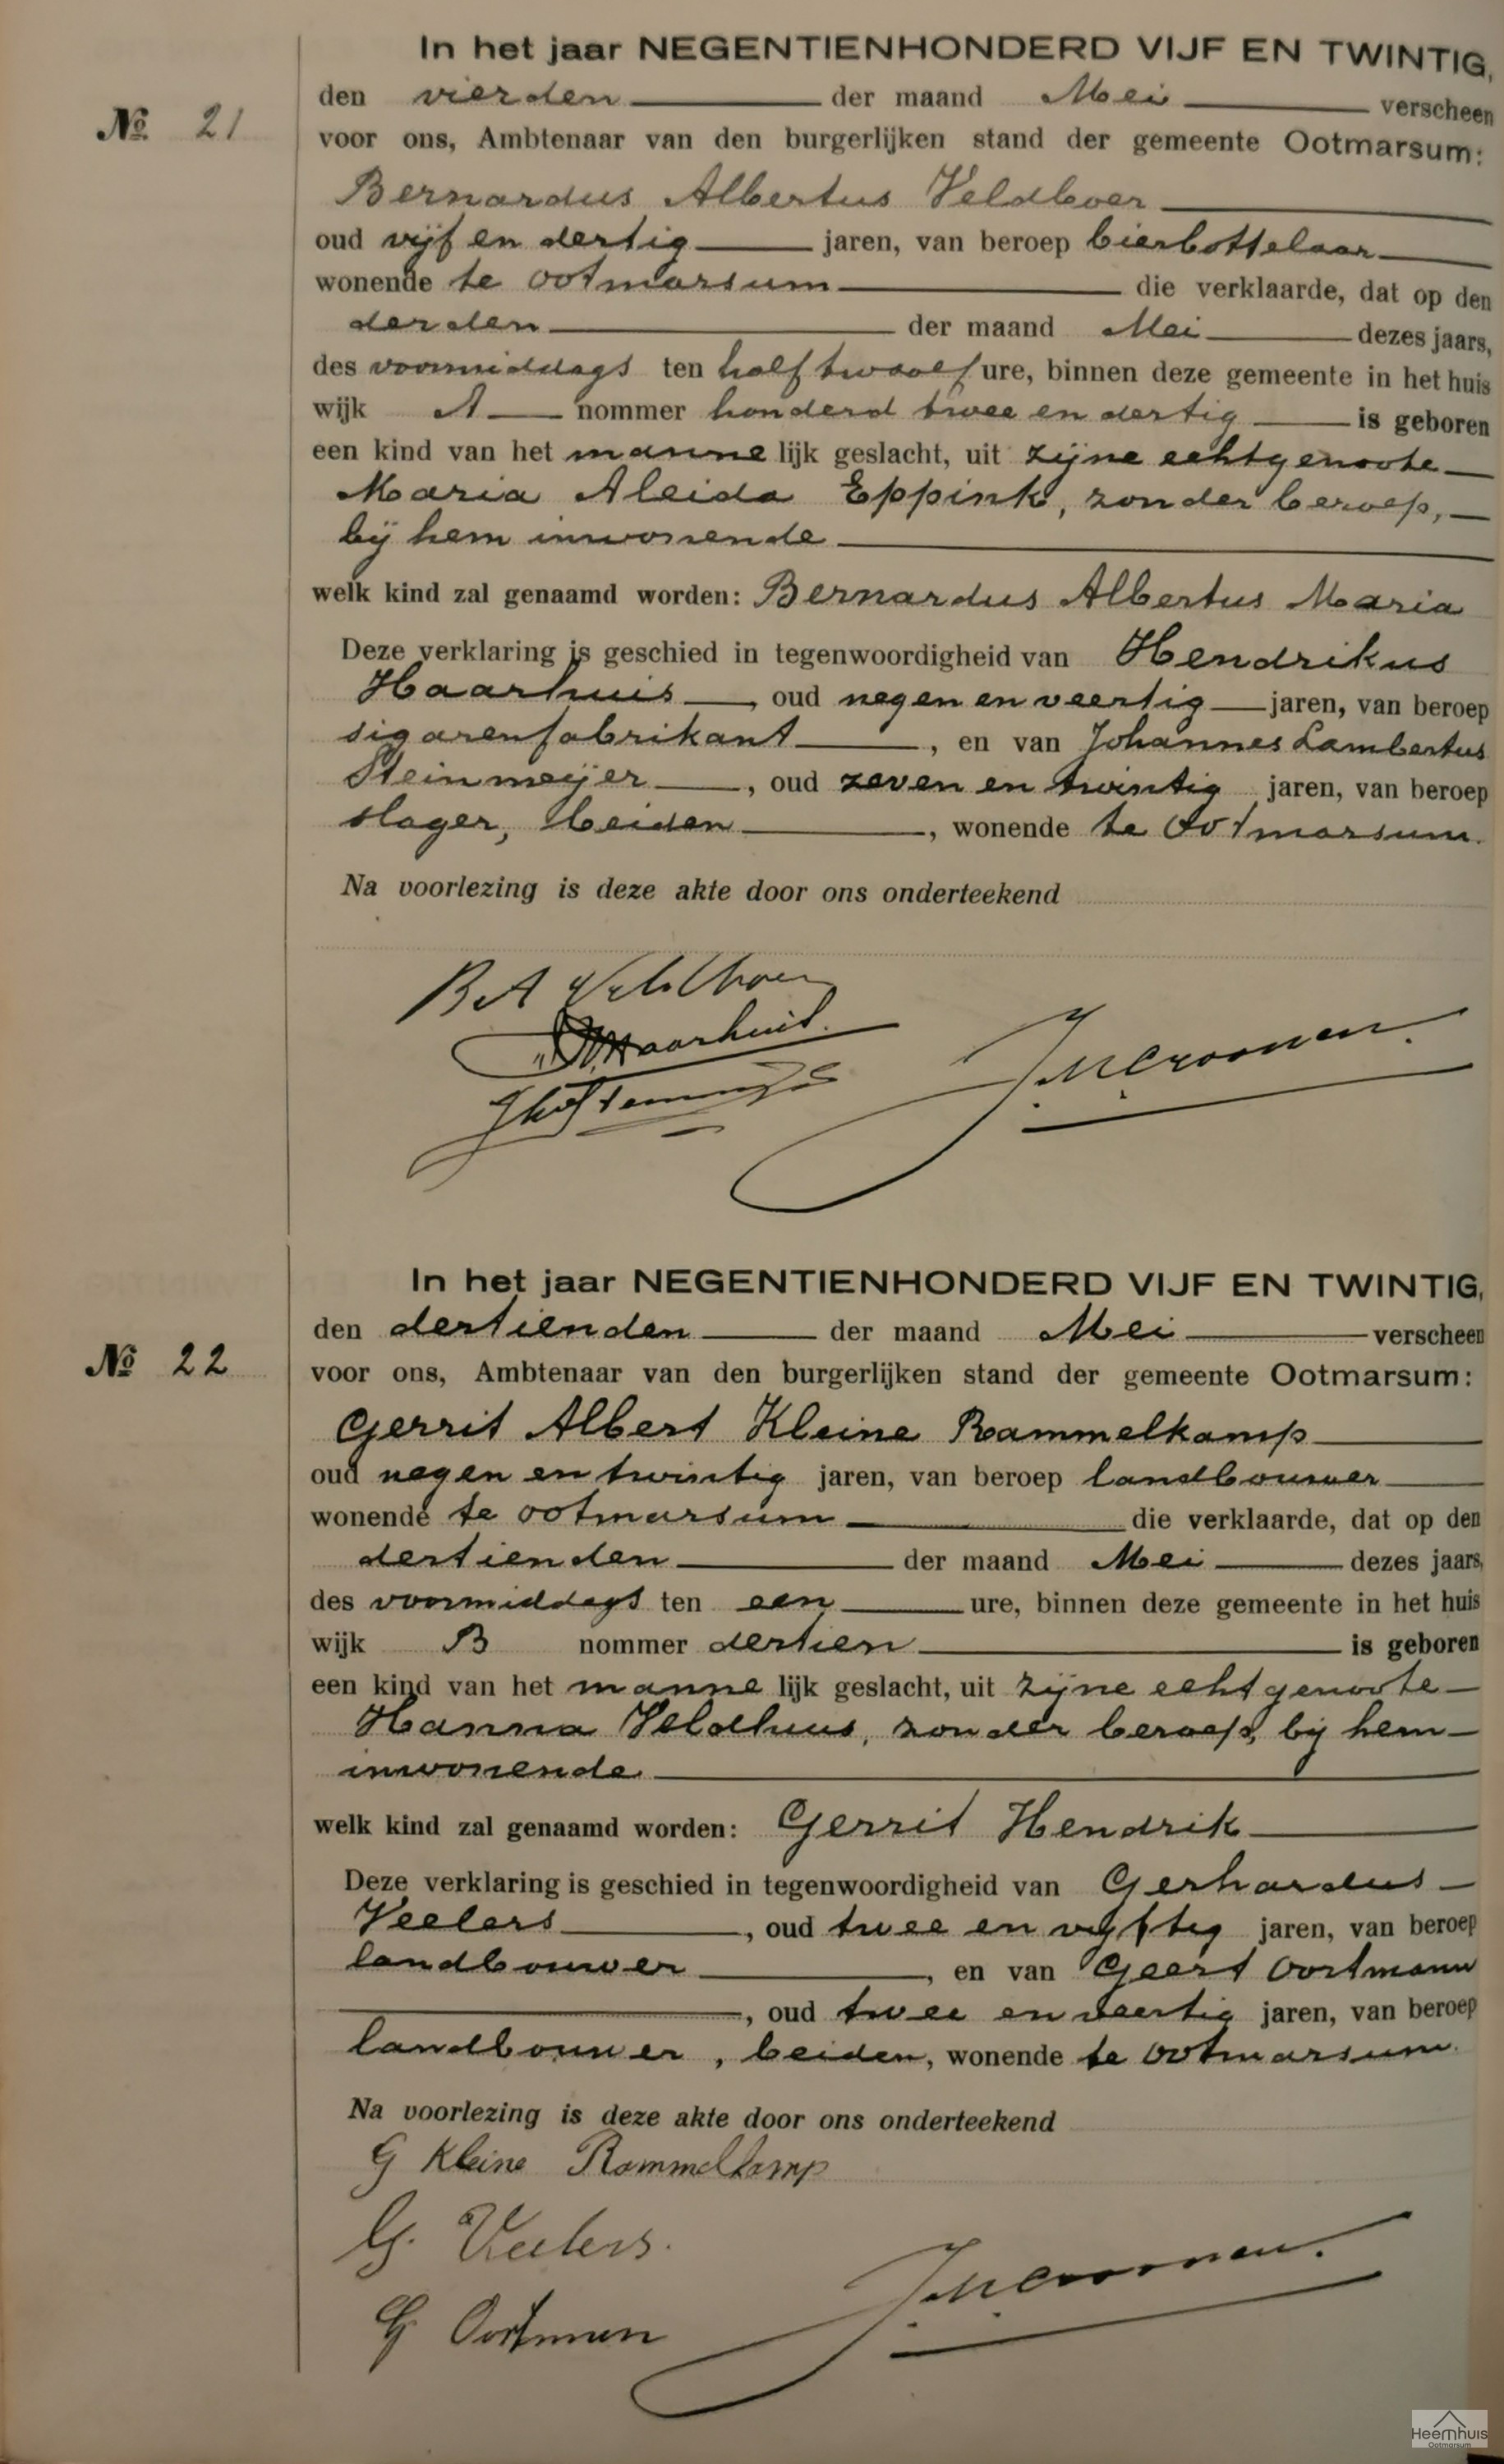 In het jaar NEGENTIENHONDERD VIJF EN TWINTIG,
den vierden der maand Mei verscheen
No 21
voor ons, Ambtenaar van den burgerlijken stand der gemeente Ootmarsum:
Bernardus Albertus Veldboer
oud vijf en dertig jaren, van beroep bierbottelaar
wonende te Ootmarsum die verklaarde, dat op den
derden der maand Mei dezes jaars,
des voormiddags ten half twaalf ure, binnen deze gemeente in het huis
wijk A nommer honderd twee en dertig is geboren
een kind van het manne lijk geslacht, uit zijne echtgenoote
Maria Aleida Eppink, zonder beroep,
bij hem inwonende
welk kind zal genaamd worden: Bernardus Albertus Maria
Deze verklaring is geschied in tegenwoordigheid van Hendrikus
Haarhuis, oud negen en veertig jaren, van beroep
sigarenfabrikant, en van Johannes Lambertus
Steinmeijer, oud zeven en twintig jaren, van beroep
slager, beiden, wonende te Ootmarsum.
Na voorlezing is deze akte door ons onderteekend
B A Veldboer
Haarhuis.
In het jaar NEGENTIENHONDERD VIJF EN TWINTIG,
den dertienden der maand Mei verscheen
No 22
voor ons, Ambtenaar van den burgerlijken stand der gemeente Ootmarsum:
Gerrit Albert Kleine Rammelkamp
oud negen en twintig jaren, van beroep landbouwer
wonende te Ootmarsum die verklaarde, dat op den
dertienden der maand Mei dezes jaars,
des voormiddags ten een ure, binnen deze gemeente in het huis
wijk B nommer dertien is geboren
een kind van het manne lijk geslacht, uit zijne echtgenoote
Hanna Veldhuus, zonder beroep, bij hem
inwonende
welk kind zal genaamd worden: Gerrit Hendrik
Deze verklaring is geschied in tegenwoordigheid van Gerhardus
Veelers, oud twee en vijftig jaren, van beroep
landbouwer, en van Geert Oortmann
, oud twee en veertig jaren, van beroep
landbouwer, beiden, wonende te Ootmarsum.
Na voorlezing is deze akte door ons onderteekend
G Kleine Rammelkamp
G. Veelers.
G Oortman
Heemhuis
Ootmarsum